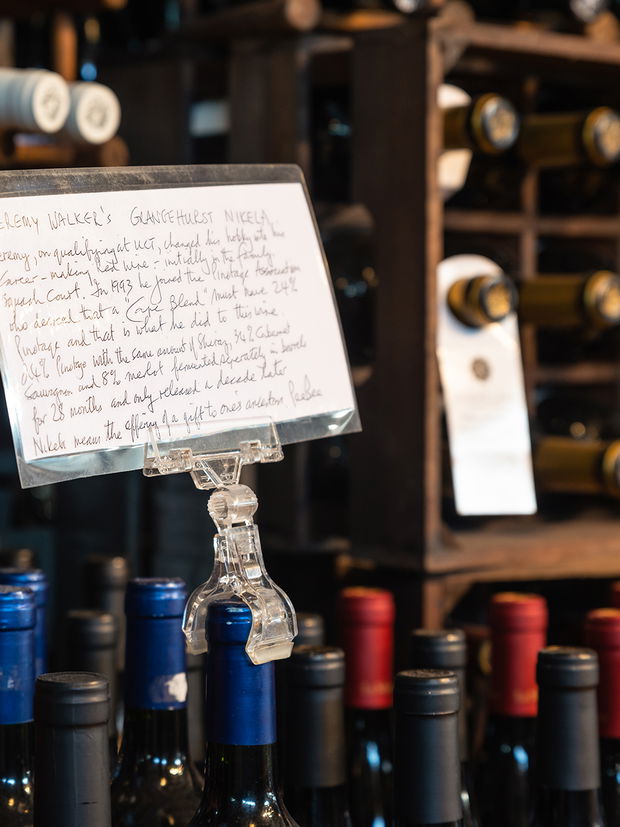 EREMY WALKER'S GRANGEHURST NIKELA
eremy, on qualifying at UCT, changed his hobby into his
career - making red wine - initially in the family
Squash Court. In 1993 he joined the Pinotage Association
who decreed that a 'Cape Blend' must have 24%
Pinotage and that is what he did to this wine.
24% Pinotage with the same amount of Shiraz, 34% Cabernet
Sauvignon and 8% merlot fermented seperately in barrels
for 28 months and only released a decade later
Nikela means the offering of a gift to one's ancestors